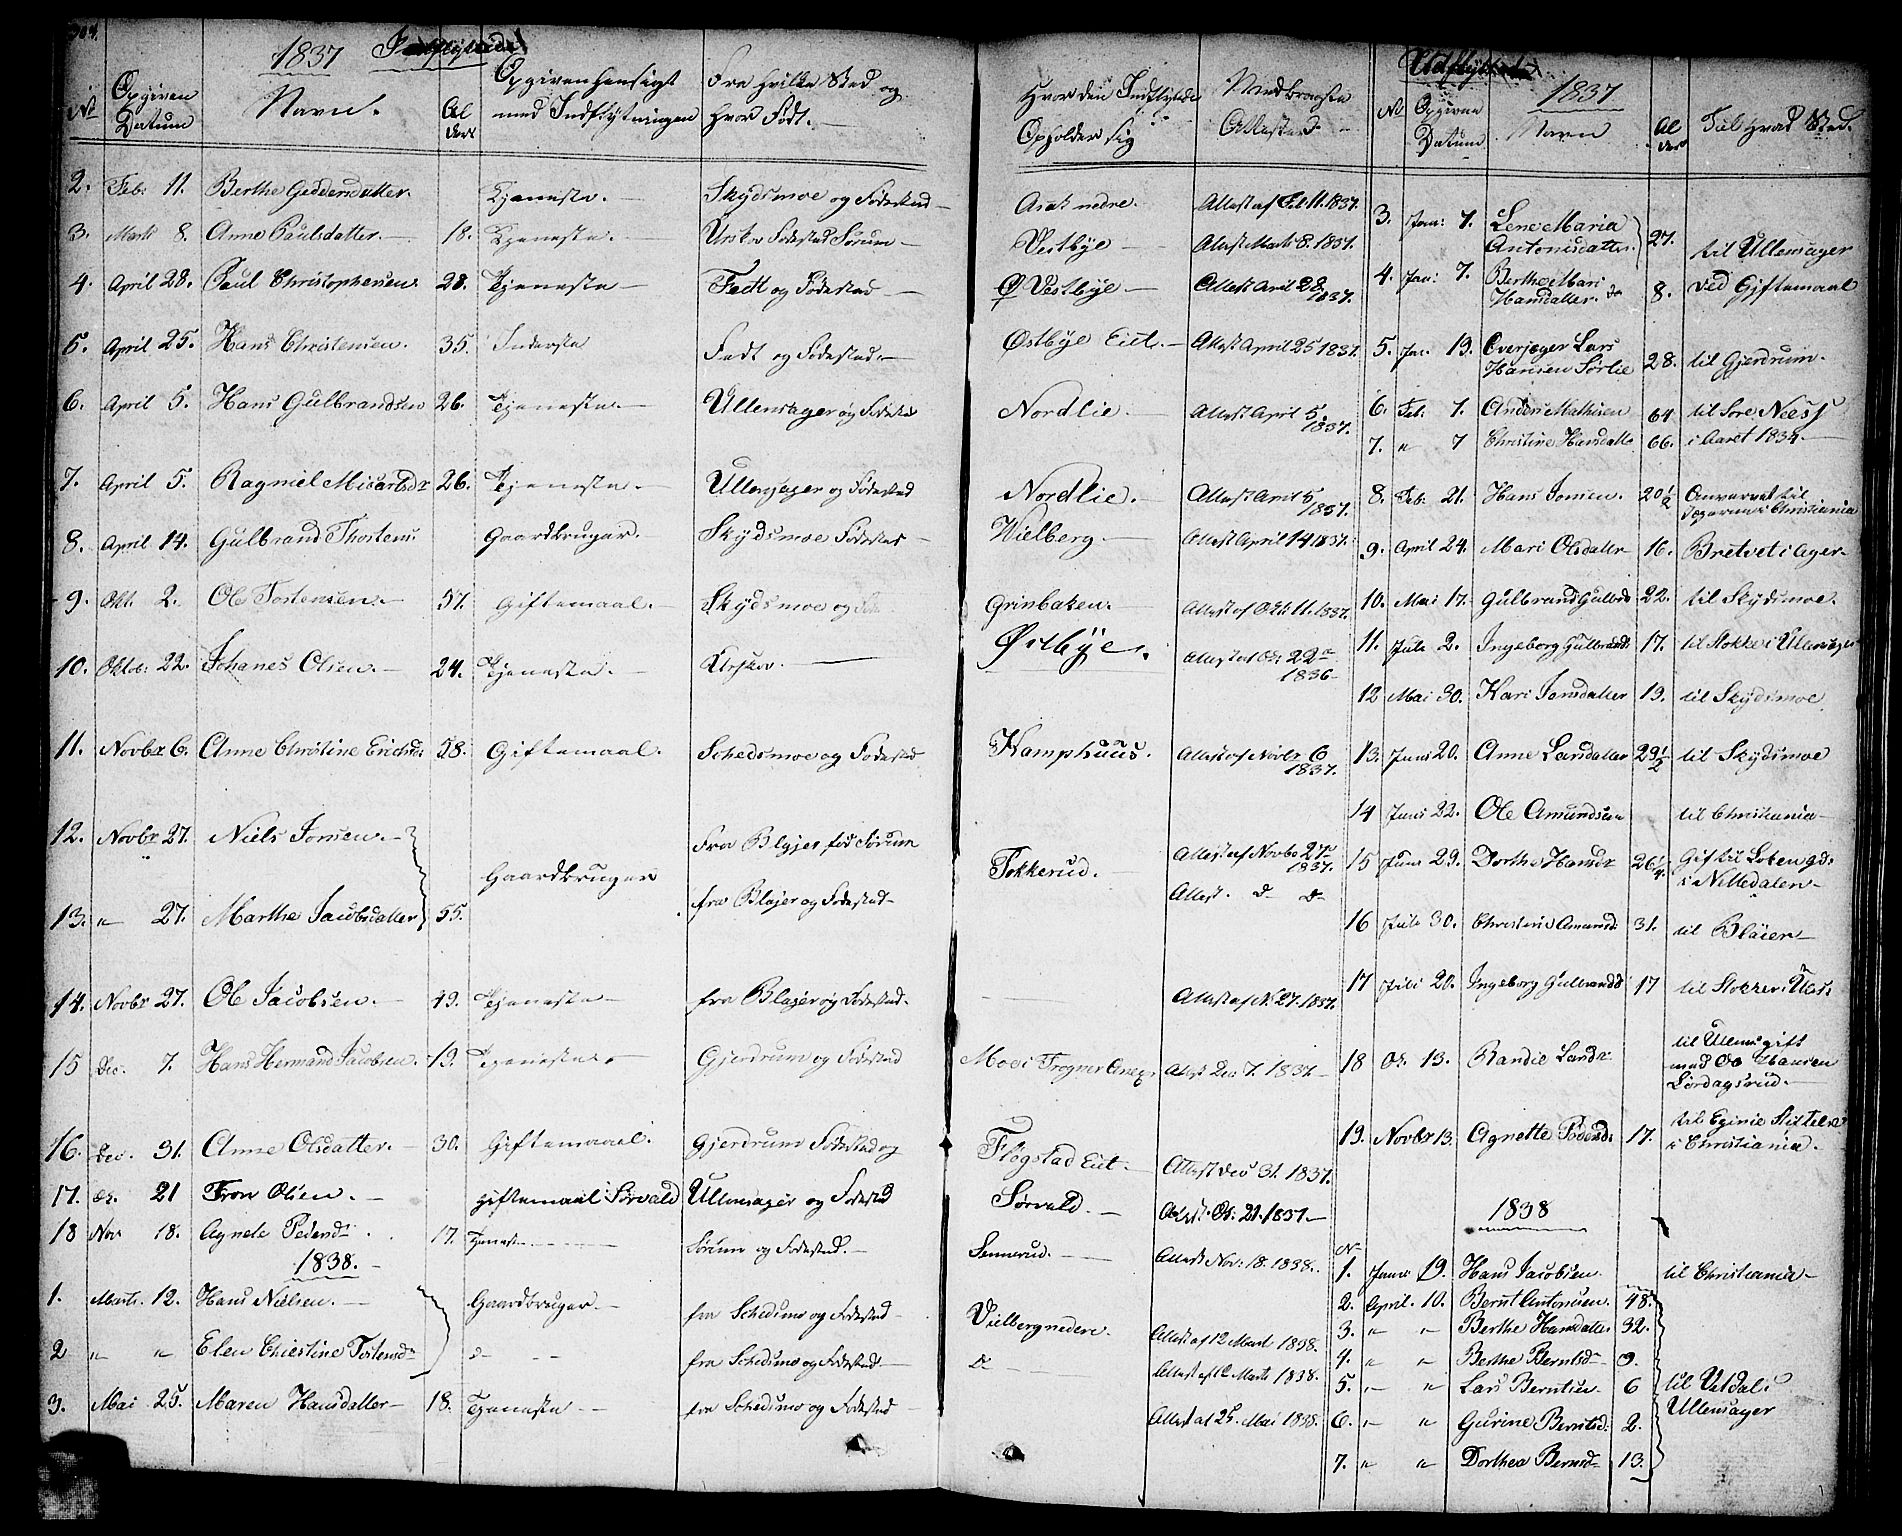 1837 Indflyttede
No Opgiven Datum Navn. Alders Opgiven hensigt med Indflytningen Fra hvilke Sted og hvor Født. Hvor den Indflyttede Opholder sig Medbragte Attester
2. Feb: 11. Berthe Geddersdatter. Tjeneste. Skydsmoe og Fødested Aras nedre. Attest af Feb 11. 1837.
3. Marts 8. Anne Paulsdatter. 18. Tjeneste. Urskov Fødested Sørum Vestbye Attest Marts 8. 1837.
4. April 28. Paul Christophersen 28. Tjeneste Fedt og Fødested Vestbye. Attest April 28. 1837.
5. April 25. Hans Christensen. 35. Inderste Fedt og Fødested. Østbye Eiet. Attest April 25 1837.
6. April 5. Hans Gulbrandsen 26. Tjeneste. Ullensager og Fødested Nordlie. Attest April 5. 1837.
7. April 5. Ragniel 26. Tjeneste. Ullensager og Fødested Nordlie. Attest April 5 1837.
8. April 14. Gulbrand Thostens: Gaardbruger. Skydsmoe Fødested Wielberg. Attest April 14 1837.
9. Okt. 2. Ole Tostensen. 57. Giftemaal. Skydsmoe og Grinbaken. Attest af Okt. 11. 1837.
10. Oktob: 22. Johanes Olsen. 24. Tjeneste. Urskov. Østbye. Attest af Ok 22 1836
11. Novbr 6. Anne Christine Erichsd: 58. Giftemaal. Schedsmoe og Fødested Kamphuus. Attest af Novbr 6 1837.
12. Novbr 27. Niels Jonsen. Gaardbruger Fra Blajer, fød Sørum Tokkerud. Attest af Novbr 27 1837.
13. " 27. Marthe Jacobsdatter 55. fra Blajer og Fødested Attest. d d
14. Novbr 27. Ole Jacobsen. 19. Tjeneste fra Blajer og Fødested. Attest af N. 27. 1837.
15 Dec. 7. Hans Hermand Jacobsen. 19. Tjeneste Gjerdrum og Fødested Moei Trogner Anex. Attest Dec 7. 1837
16. Dec. 31. Anne Olsdatter. 30. Giftemaal. Gjerdrum Fødested og Fløgstad Eiet. Attest Dec 31. 1837.
17. 21 Tron Olsen. giftemaal i Sørvald Ullensager og Fødested Sørvald. Attest Ok: 21. 1837.
18 Nov 18. Agnete Pedersd: 17. Tjenest. Sørum og Fødested. Sennerud. Attest Nov: 18. 1838.
1838.
1. Marts. 12. Hans Nielsen. Gaardbruger. fra Schedsmo og Fødested Vielberg nedere. Attest af 12 Marts 1838.
2 " " Elen Christine Tostensd d fra Schedsmo og Fødested. d Attest af 12 Marts 1838.
3. Mai 25. Maren Hansdatter 18. Tjeneste fra Schedsmo og Fødested Attest af 25. Mai 1838.
Udflyttede
1837
No Opgiven Datum Navn Alders Til hvad Sted.
3. Jan: 7. Lene Maria Antonisdatter. 27. til Ullensager
4. Jan: 7. Berthe Mari Hansdatter. 8. ved Giftemaal
5. Jan: 13. Overjeger Lars Hansen Sørlie 28. til Gjerdrum.
6. Feb: 7. Anders Mathisen 64 til Søre Nees
7. " 7 Christine Hansdatt 66. i Aaret 1834.
8. Feb: 21. Hans Jonsen. 20 1/2 Anvervet til Jegerne i Christiania
9. April 24. Mari Olsdatter 16. Bretvet i Ager
10. Mai 17. Gulbrand Gulbrds 22. til Skydsmoe.
11. Juli 2. Ingeborg Gulbrandsd 17. til Stokke i Ullensager
12 Mai 30. Kari Jonsdatter 19. til Skydsmoe
13. Juni 20. Anne Larsdatter 29 1/2 til Skydsmoe
14 Juni 22. Ole Amundsen til Christiania
15 Juni 29. Dorthe Hansdr 26 1/4. Gift til i Nittedalen
16 Juli 30. Christine Amunds: 31. til Bläier
17 Juli 20. Ingeborg Gulbrandsd 17 til Stokke i Ulls:
18 Ok. 13. Randie Larsdr til Ullens: gift med Ole Hansen Lørdagsrud.
19. Novbr 13. Agnette Pedersd: 17. til Eginie Stiftelse i Christiania.
1838
No
1. Janu: 19. Hans Jacobsen. til Christiania
2. April. 10. Bernt Antonsen. 48.
3. " " Berthe Hansdatter 32.
4. " " Berthe Berntsd 9.
5. " " Lars Berntsen. 6 til Vetdal i
6. " " Gurine Berntsd: 2. Ullensager
7. " " Dorthea Berntsd 13.